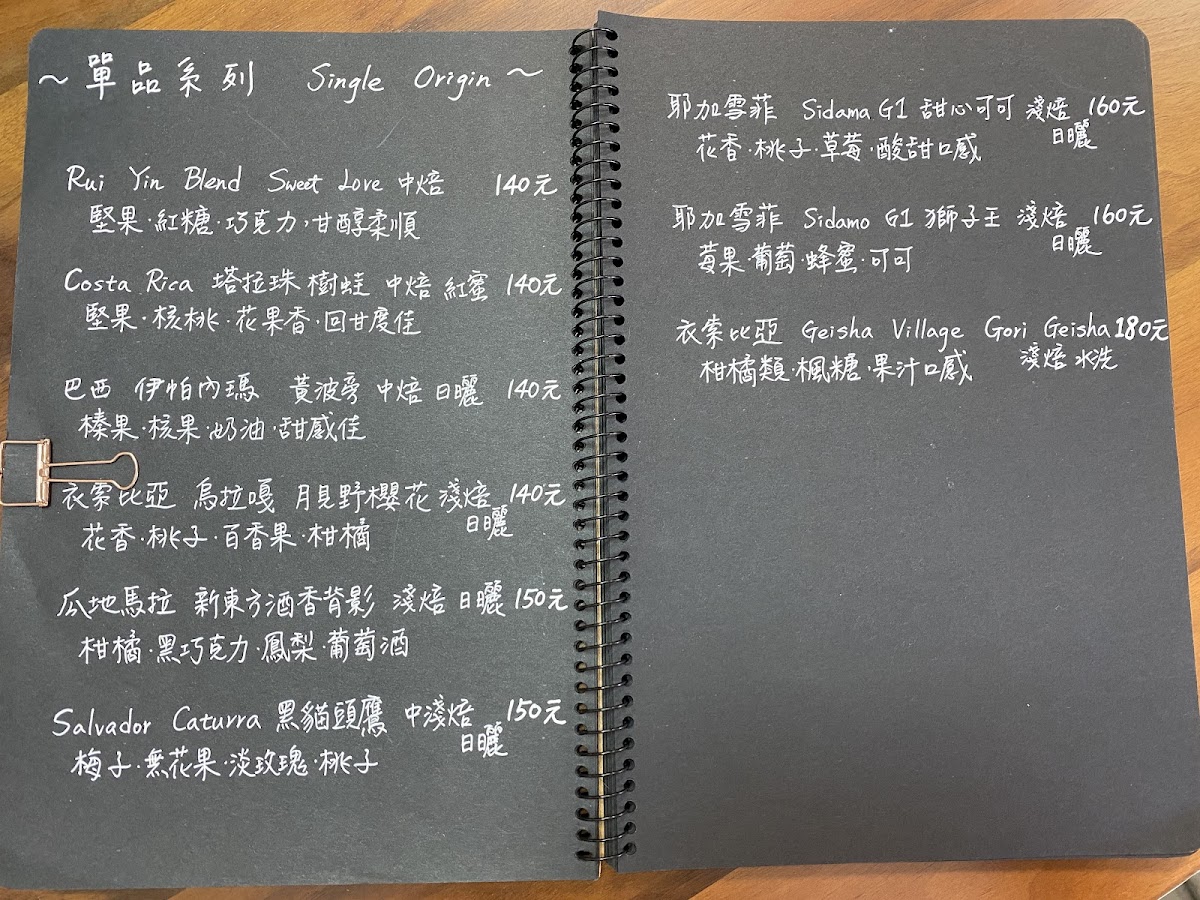 ~ 單品系列 Single Origin ~
Rui Yin Blend Sweet Love 中焙 140元
堅果·紅糖·巧克力,甘醇柔順
Costa Rica 塔拉珠 樹蛙 中焙 紅蜜 140元
堅果·核桃·花果香·回甘度佳
巴西 伊帕內瑪 黃波旁 中焙 日曬 140元
榛果·核果·奶油·甜感佳
衣索比亞 烏拉嘎 月見野櫻花 淺焙 140元
日曬
花香·桃子·百香果·柑橘
瓜地馬拉 新東方酒香背影 淺焙 日曬 150元
柑橘·黑巧克力·鳳梨·葡萄酒
Salvador Caturra 黑貓頭鷹 中淺焙 150元
日曬
梅子·無花果·淡玫瑰·桃子
耶加雪菲 Sidama G1 甜心可可 淺焙 160元
日曬
花香·桃子·草莓·酸甜口感
耶加雪菲 Sidamo G1 獅子王 淺焙 160元
日曬
莓果·葡萄·蜂蜜·可可
衣索比亞 Geisha Village Gori Geisha 180元
淺焙 水洗
柑橘類·楓糖·果汁口感